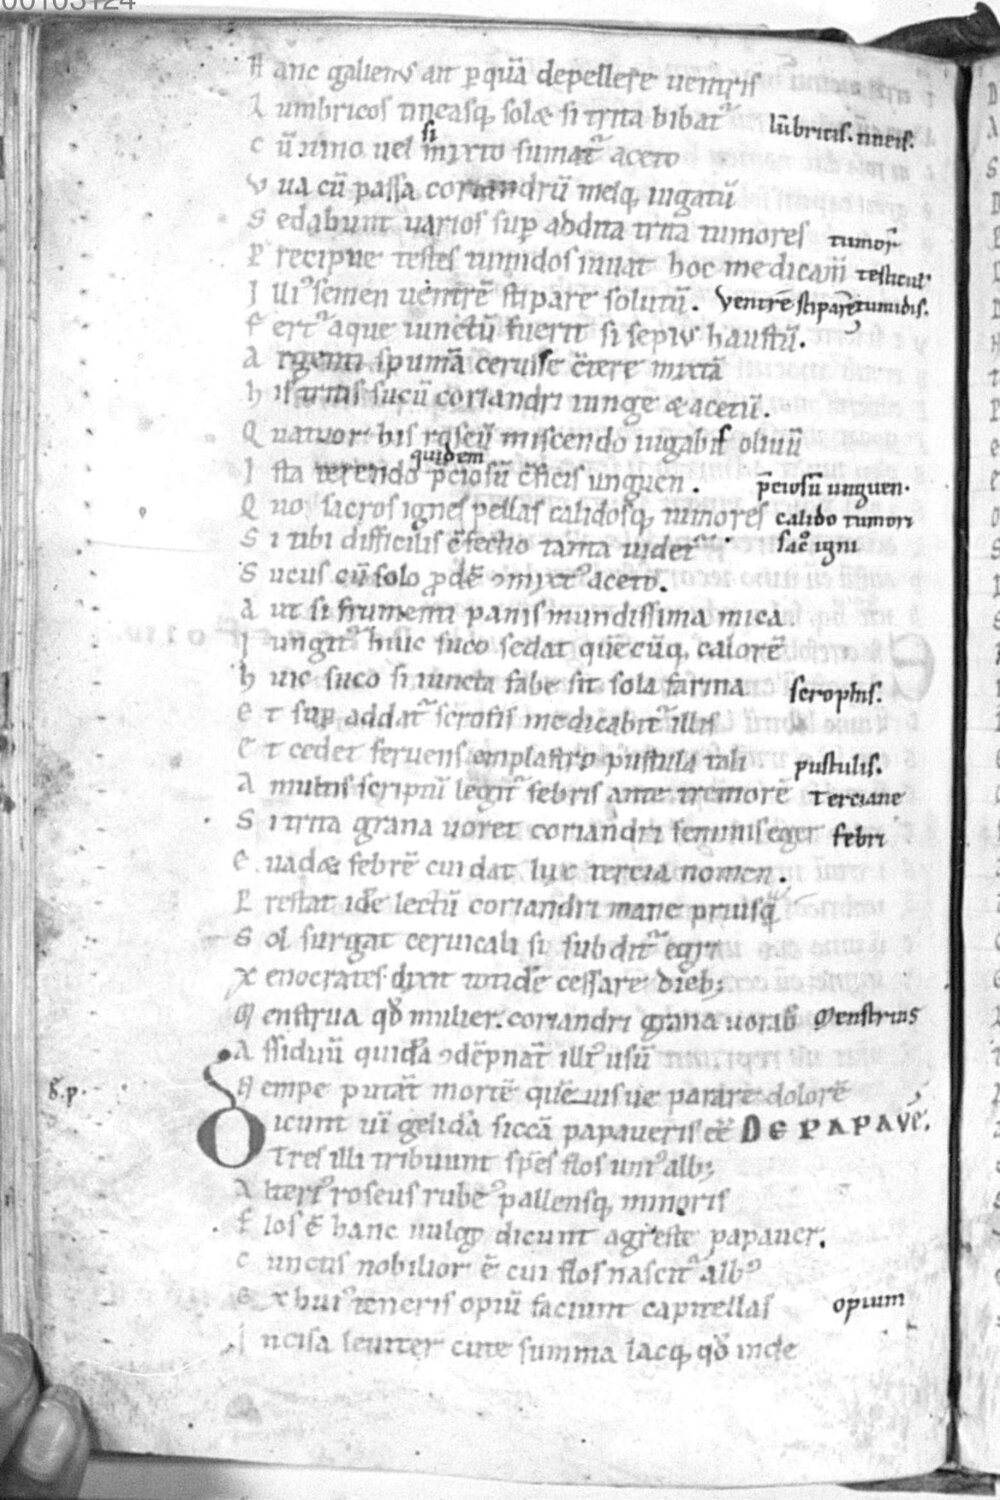 00103124
H anc galienus ait ꝑ quā depellere uentris
L umbricos tineasq; solæ si trita bibat᷑ lūbricis. tineis.
C ū uino uel si mixto sumat᷑ aceto
V ua cū passa coriandrū melq; iugatū
S edabunt uarios suꝑ addita trita tumores tumor̄
P recipue testes tumidos iuuat hoc medicam̄ testicul᷑
I lliꝰ semen uentrē stipare solutū. Ventrē stipare tumidis.
F ert᷑ aque iunctū fuerit si sepiꝰ haustū.
A rgenti spumā ceruse c̄tere mixtā
h is tritis sucū coriandri iunge & acetū.
Q uatuor his roseū miscendo iugabis oliuū
I sta terendo quidem p̄ciosū c̄ficis unguen. p̄ciosū unguen.
Q uo sacros ignes pellas calidosq; tumores calido tumori
S i tibi difficilis c̄fectio tanta uidet᷑. sac̄ igni
S ucus cū solo ꝓdē ꝯmixtꝰ aceto.
A ut si frumenti panis mundissima mica
I ungit᷑ huic suco sedat quēcūq; calorē
h uic suco si iuncta fabe sit sola farina scrophis.
E t suꝑ addat᷑ scrofis medicabit᷑ illis
C t cedet feruens emplastro pustula tali pustulis.
A multis scriptū legit᷑ febris ante tremorē Terciane
S i trita grana uoret coriandri seminis eger febri
E uadæ febrē cui dat lux tercia nomen.
P restat idē lectū coriandri mane priusq̄
S ol surgat ceruicali si subdit᷑ egri
X enocrates dixit totidē cessare dieb;
M enstrua qd̄ mulier. coriandri grana uorab̄ Menstruis
A ssiduū quidā ꝯdēpnāt illiꝰ usū
N empe putāt mortē quē uisue parare dolorē
D icunt uī gelidā siccā papaueris eē DE PAPAVE.
Tres illi tribuunt spēs flos uniꝰ alb;
A lteriꝰ roseus rubeꝰ pallensq; minoris
F los ē hanc uulgo dicunt agreste papauer.
C unctis nobilior ē cui flos nascit᷑ albꝰ
E x huiꝰ teneris opiū faciunt capitellis opium
I ncisa leuiter cute summa lacq; qd̄ inde